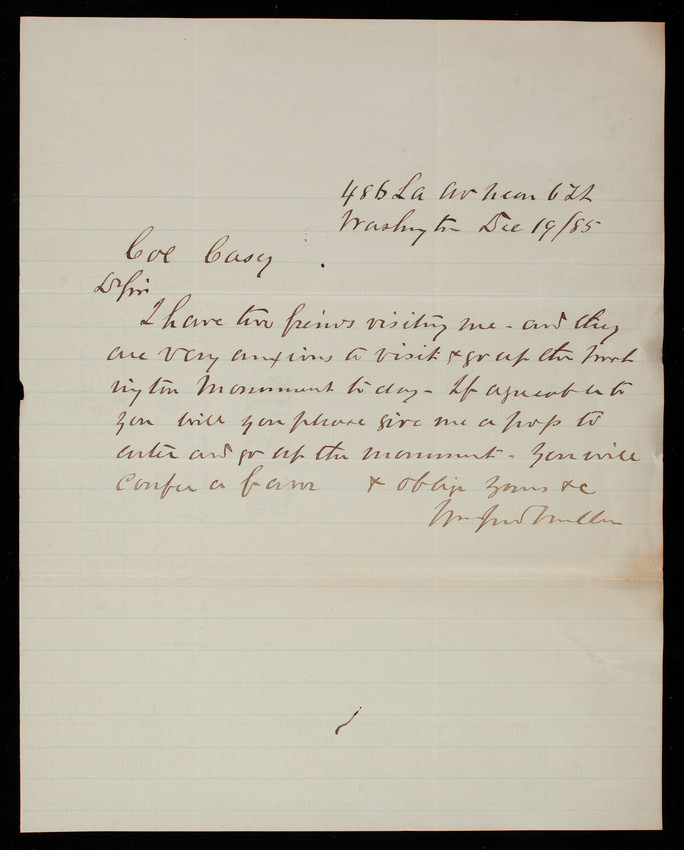 486 La Av near 6th
Washington Dec 19/85
Col Casey
Dr Sir
I have two freinds visiting me - and they
are very anxious to visit & go up the Wash
ington Monument to day - If agreeable to
you will you please give me a pass to
enter and go up the monument - You will
Confer a favor & oblige yours &c
Wm